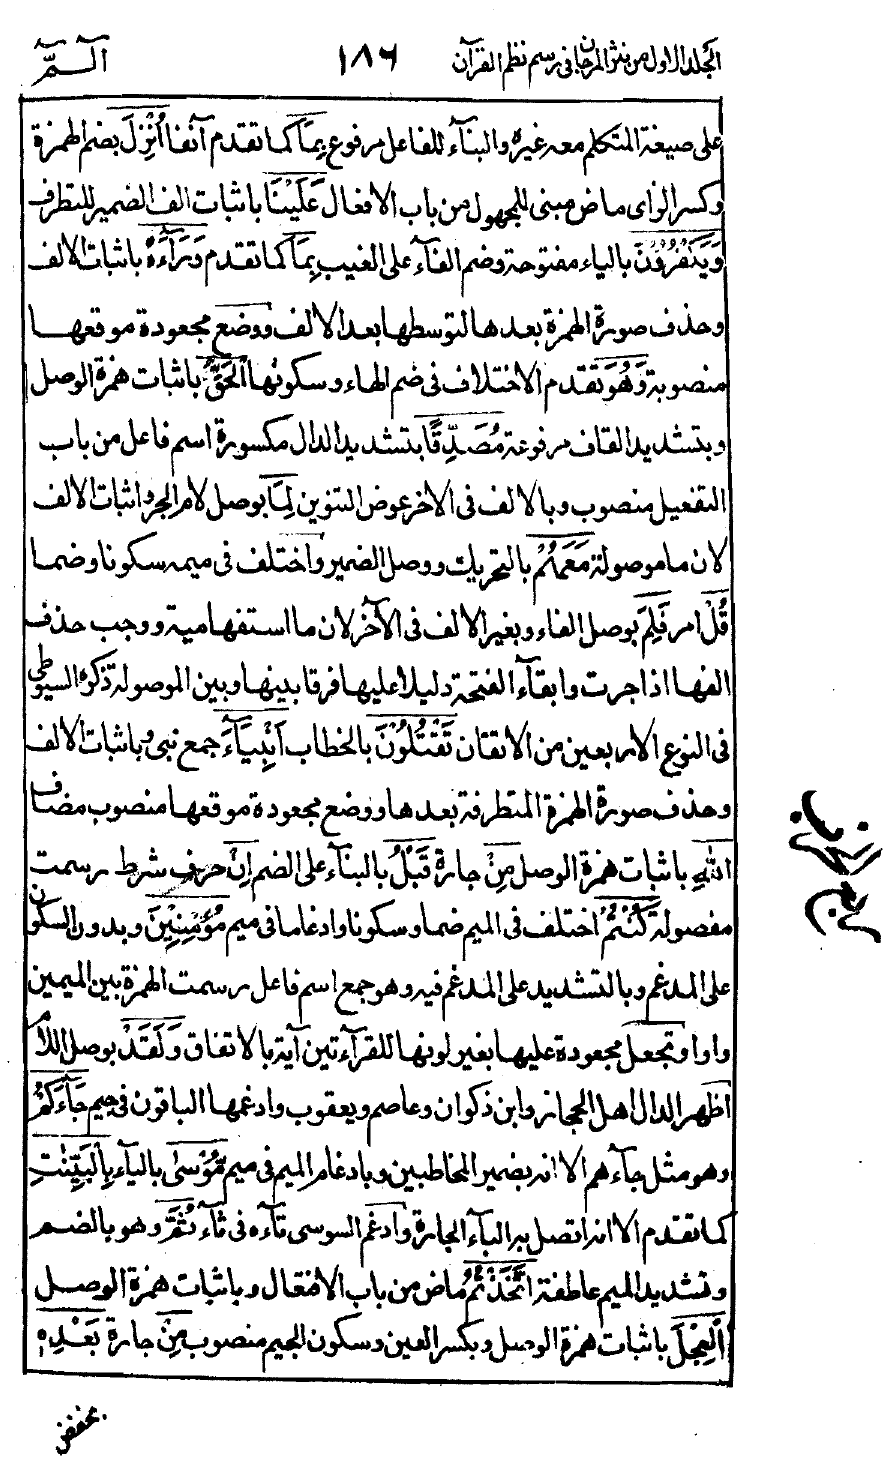 المجلد الاول من نثر المرجان في رسم نظم القرآن ١٨٦ الٓـمّٓ
على صيغة المتكلم معه غيره والبنآء للفاعل مرفوع بِمَآ كما تقدم آنفا اُنْزِلَ بضم الهمزة
وكسر الزاى ماض مبنى للمجهول من باب الافعال عَلَيْنَا باثبات الف الضمير للتطرف
وَيَكْفُرُوْنَ بالياء مفتوحة وضم الفآء على الغيب بِمَا كما تقدم وَرَآءَهٗ باثبات الالف
وحذف صورة الهمزة بعدها لتوسطها بعد الالف ووضع مجعودة موقعها
منصوبة وَهُوَ تقدم الاختلاف فى ضم الهاء وسكونها اَلْحَقُّ باثبات همزة الوصل
وبتشديد القاف مرفوعة مُصَدِّقًا بتشديد الدال مكسورة اسم فاعل من باب
التفعيل منصوب وبالالف فى الآخر عوض التنوين لِمَا بوصل لام الجر واثبات الالف
لان ما موصولة مَعَهُمْ بالتحريك ووصل الضمير واختلف فى ميمه سكونا وضما
قُلْ امر فَلِمَ بوصل الفاء وبغير الالف فى الآخر لان ما استفهامية ووجب حذف
الفها اذا جرت وابقآء الفتحة دليلا عليها فرقا بينها وبين الموصولة ذكره السيوطى
فى النوع الاربعين من الاتقان تَقْتُلُوْنَ بالخطاب اَنْبِيَآءَ جمع نبى وباثبات الالف
وحذف صورة الهمزة المتطرفة بعدها ووضع مجعودة موقعها منصوب مضاف
اللهِ باثبات همزة الوصل مِنْ جارة قَبْلُ بالبنآء على الضم اِنْ حرف شرط رسمت
مفصولة كُنْتُمْ اختلف فى الميم ضما وسكونا وادغاما فى ميم مُؤْمِنِيْنَ وبدون السكون
على المدغم وبالتشديد على المدغم فيه وهو جمع اسم فاعل رسمت الهمزة بين الميمين
واوا وتجعل مجعودة عليها بغير لونها للقرآءتين آية بالاتفاق وَلَقَدْ بوصل اللام
اظهر الدال اهل الحجاز وابن ذكوان وعاصم ويعقوب وادغمها الباقون فى جيم جَآءَكُمْ
وهو مثل جآءهم الا انه بضمير المخاطبين وبادغام الميم فى ميم مُّوْسٰى بالياء بِالْبَيِّنٰتِ
كما تقدم الا انه اتصل به البآء الجارة وادغم السوسى تآءه فى ثآء ثُمَّ وهو بالضم
وتشديد الميم عاطفة اتَّخَذْتُمُ ماض من باب الافتعال وباثبات همزة الوصل
الْعِجْلَ باثبات همزة الوصل وبكسر العين وسكون الجيم منصوب مِنْ جارة بَعْدِهٖ
بخفض